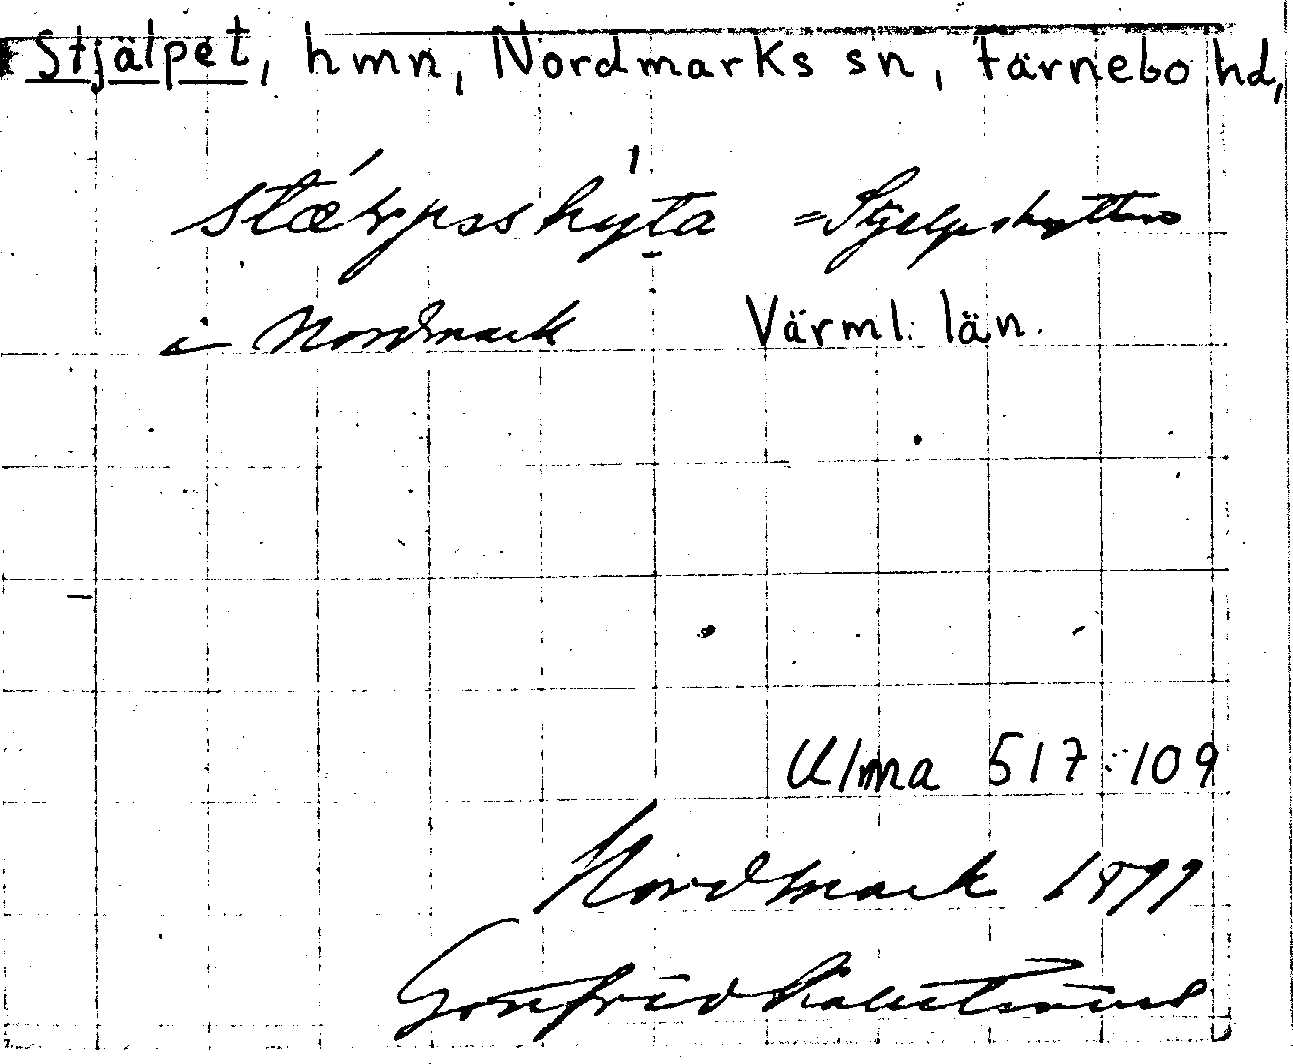 Stjälpet, hmn, Nordmarks sn, Färnebo hd,
= Stjelpshyttan
i Nordmark Värml. län.
Ulma 517:109
Nordmark 1899
Gottfrid Kallstenius